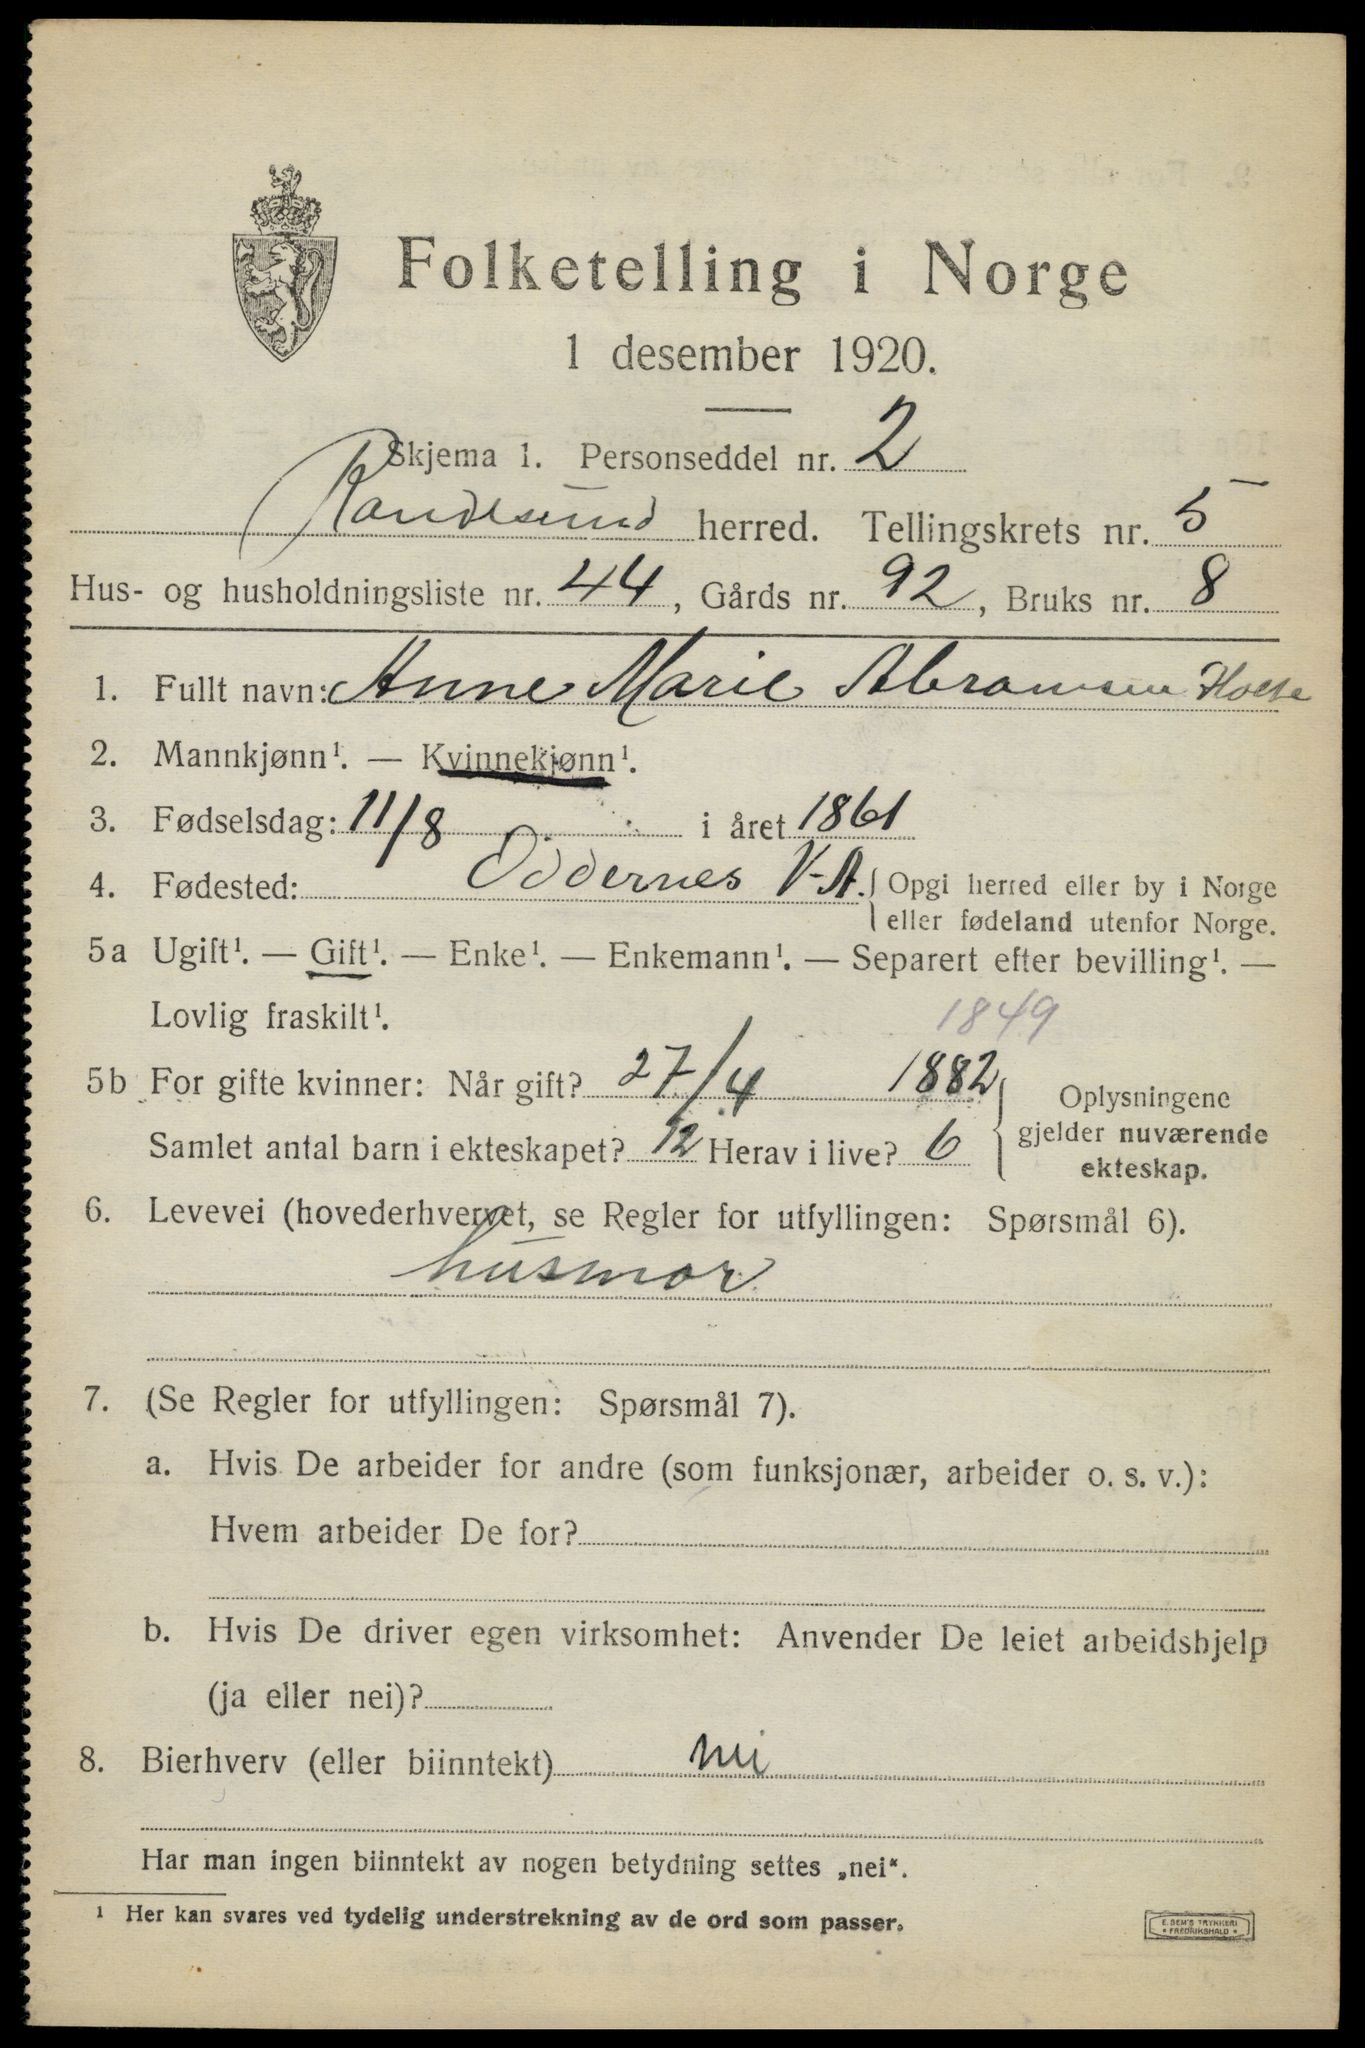 Folketelling i Norge
1 desember 1920.
Skjema 1. Personseddel nr. 2
Randesund herred. Tellingskrets nr. 5
Hus- og husholdningsliste nr. 44, Gårds nr. 92, Bruks nr. 8
1. Fullt navn: Anne Marie Abramsen
2. Mannkjønn¹. — Kvinnekjønn¹.
3. Fødselsdag: 11/8 i året 1861
4. Fødested: Oddernes V-A. Opgi herred eller by i Norge
eller fødeland utenfor Norge.
5a Ugift¹. — Gift¹. — Enke¹. — Enkemann¹. — Separert efter bevilling¹. —
Lovlig fraskilt¹.
1849
5b For gifte kvinner: Når gift? 27/4 1882
Samlet antal barn i ekteskapet? 12 Herav i live? 6
Oplysningene
gjelder nuværende
ekteskap.
6. Levevei (hovederhvervet, se Regler for utfyllingen: Spørsmål 6).
husmor
7. (Se Regler for utfyllingen: Spørsmål 7).
a. Hvis De arbeider for andre (som funksjonær, arbeider o. s. v.):
Hvem arbeider De for?
b. Hvis De driver egen virksomhet: Anvender De leiet arbeidshjelp
(ja eller nei)?
8. Bierhverv (eller biinntekt) nei
Har man ingen biinntekt av nogen betydning settes „nei“.
¹ Her kan svares ved tydelig understrekning av de ord som passer.
E. SEM'S TRYKKERI
* FREDRIKSHALD *